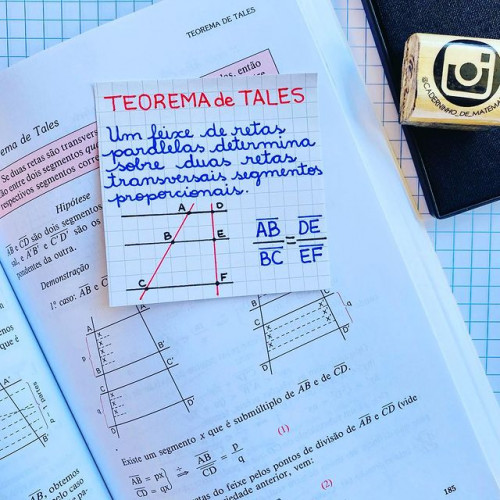 TEOREMA DE TALES
TEOREMA de TALES
Um feixe de retas
paralelas determina
sobre duas retas
transversais segmentos
proporcionais.
A D
B E
C F
AB/BC = DE/EF
@CADERNINHO_DE_MATEM
ema de Tales
les, então
Se duas retas são transvers
ão entre dois segmentos que
respectivos segmentos corre
Hipótese
AB e CD são dois segmentos
sal, e A'B' e C'D' são os
pondentes da outra.
Demonstração
1º caso: AB e C
A
p
B
B'
C
C'
q
D
q
C
D
D'
Existe um segmento x que é submúltiplo de AB e de CD.
AB = px
CD = qx
⇒ AB/CD = p/q (1)
tas do feixe pelos pontos de divisão de AB e CD (vide
iedade anterior, vem:
(2)
185
enos
que é
A'
p − 1 partes
B'
AB, obtemos
pelo caso